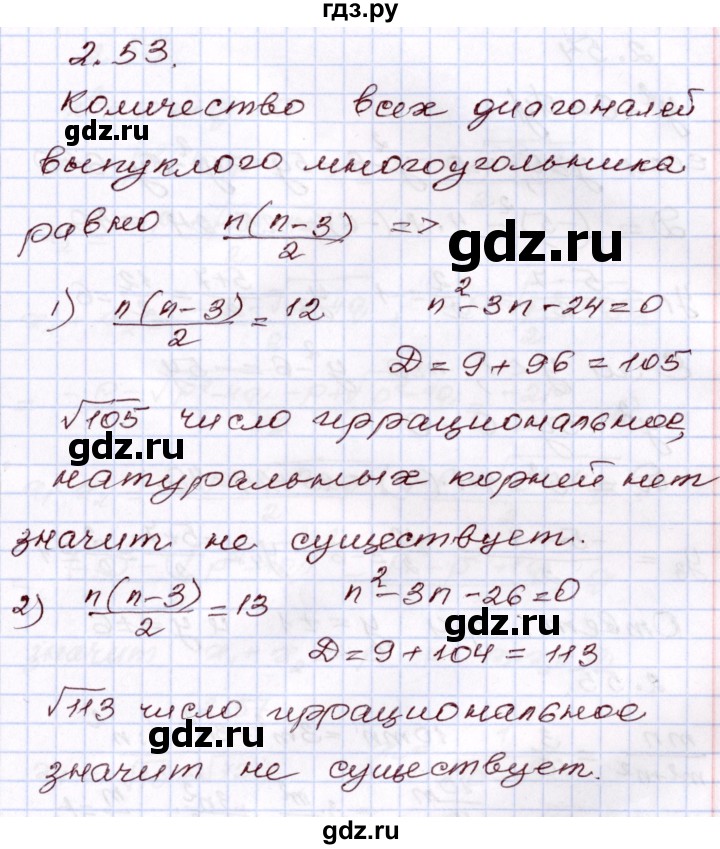 гдз.ру
2.53.
Количество всех диагоналей
gdz.ru
выпуклого многоугольника
равно n(n-3)/2 =>
gdz.ru
1) n(n-3)/2 = 12 n²-3n-24=0
Д=9+96=105
√105 число иррациональное,
gdz.ru
gdz.ru
натуральных корней нет
значит не существует.
2) n(n-3)/2 = 13 n²-3n-26=0
gdz.ru
gdz.ru
Д=9+104=113
√113 число иррациональное
gdz.ru
значит не существует.
gdz.ru